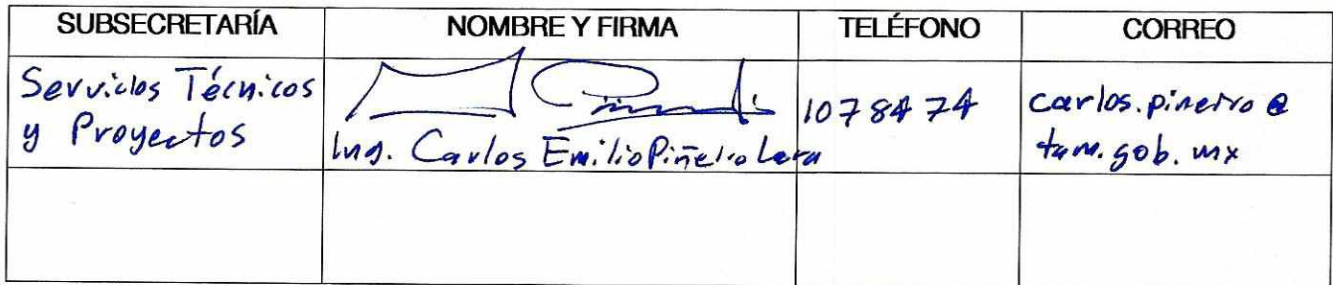 SUBSECRETARÍA NOMBRE Y FIRMA TELÉFONO CORREO
Servicios Técnicos
y Proyectos
Ing. Carlos Emilio Piñeiro Lara
1078474
carlos.pineiro@
tam.gob.mx